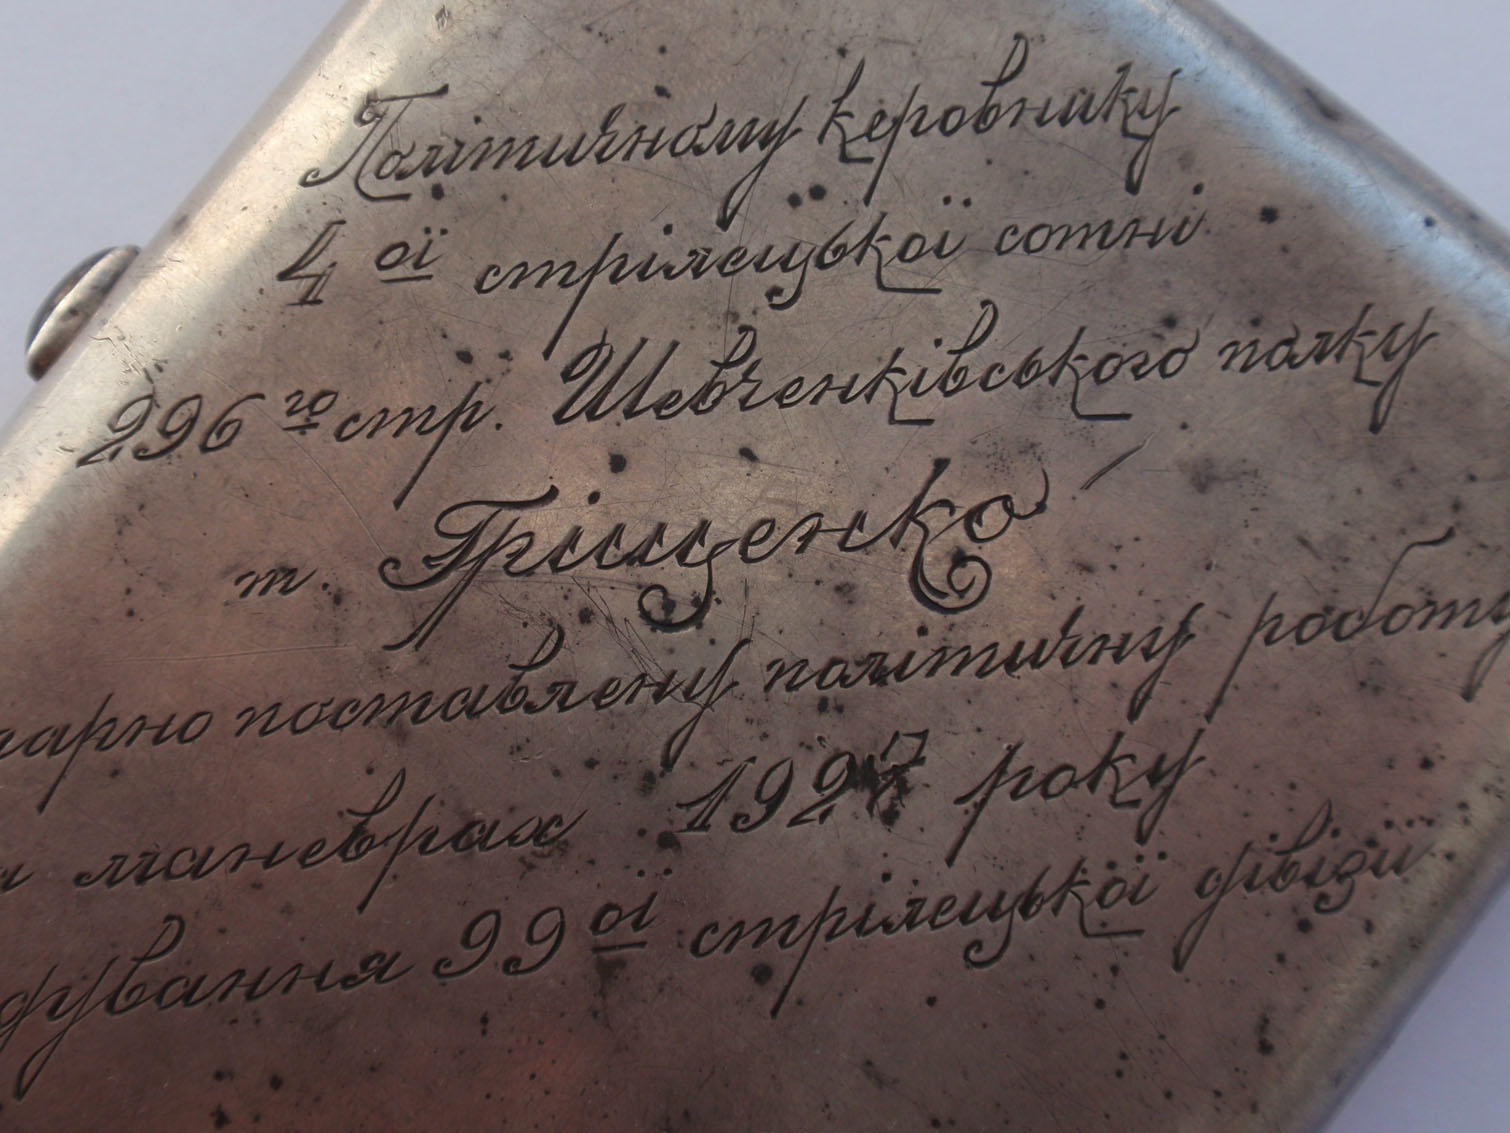 Політичному керовнику
4ої стрілецької сотні
296го стр. Шевченківського полку
т. Гріщенко
гарно поставлену політичну роботу
маневрах 1927 року
дування 99ої стрілецької дівізії